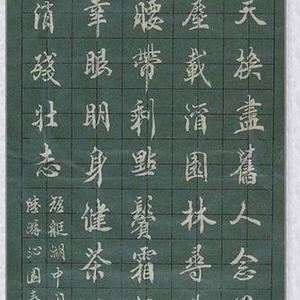 天換盡舊人念
塵載酒園林尋
腰帶剩點鬢霜
幸眼明身健茶
消殘壯志
短艇湖中
陸游沁園春